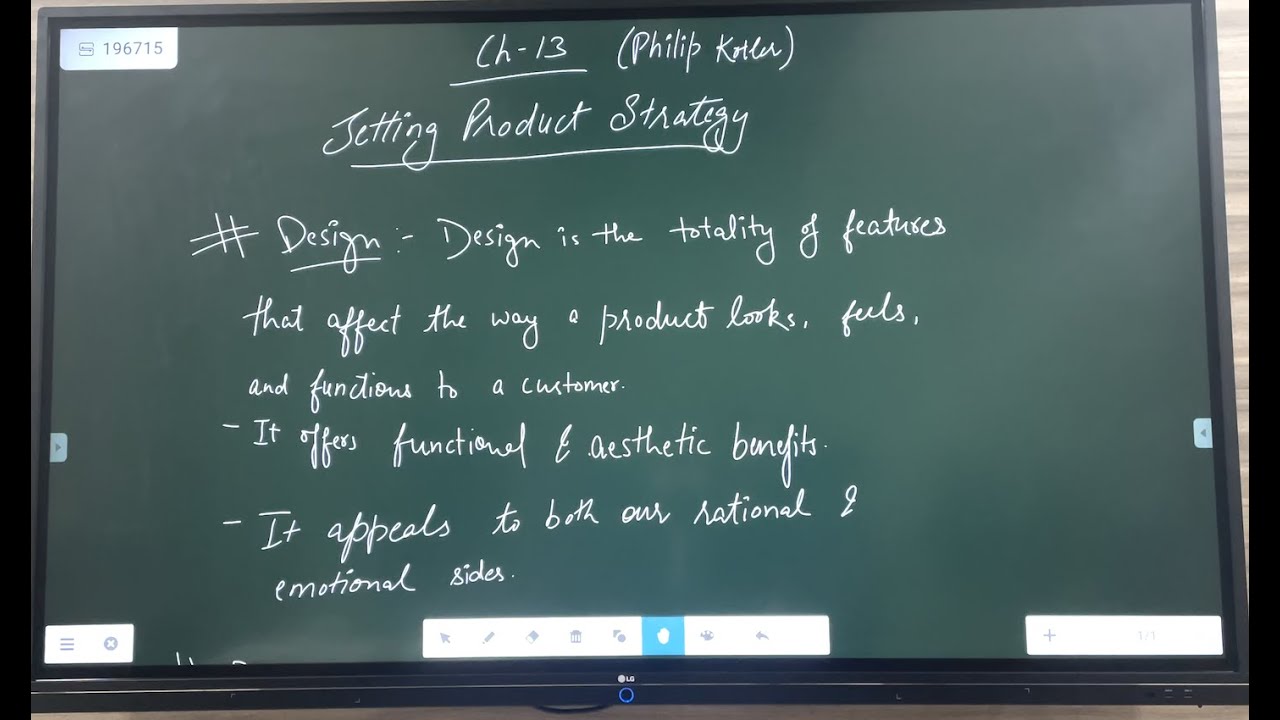 196715
Ch-13 (Philip Kotler)
Setting Product Strategy
# Design :- Design is the totality of features
that affect the way a product looks, feels,
and functions to a customer.
- It offers functional & aesthetic benefits.
- It appeals to both our rational &
emotional sides.
1/1
LG